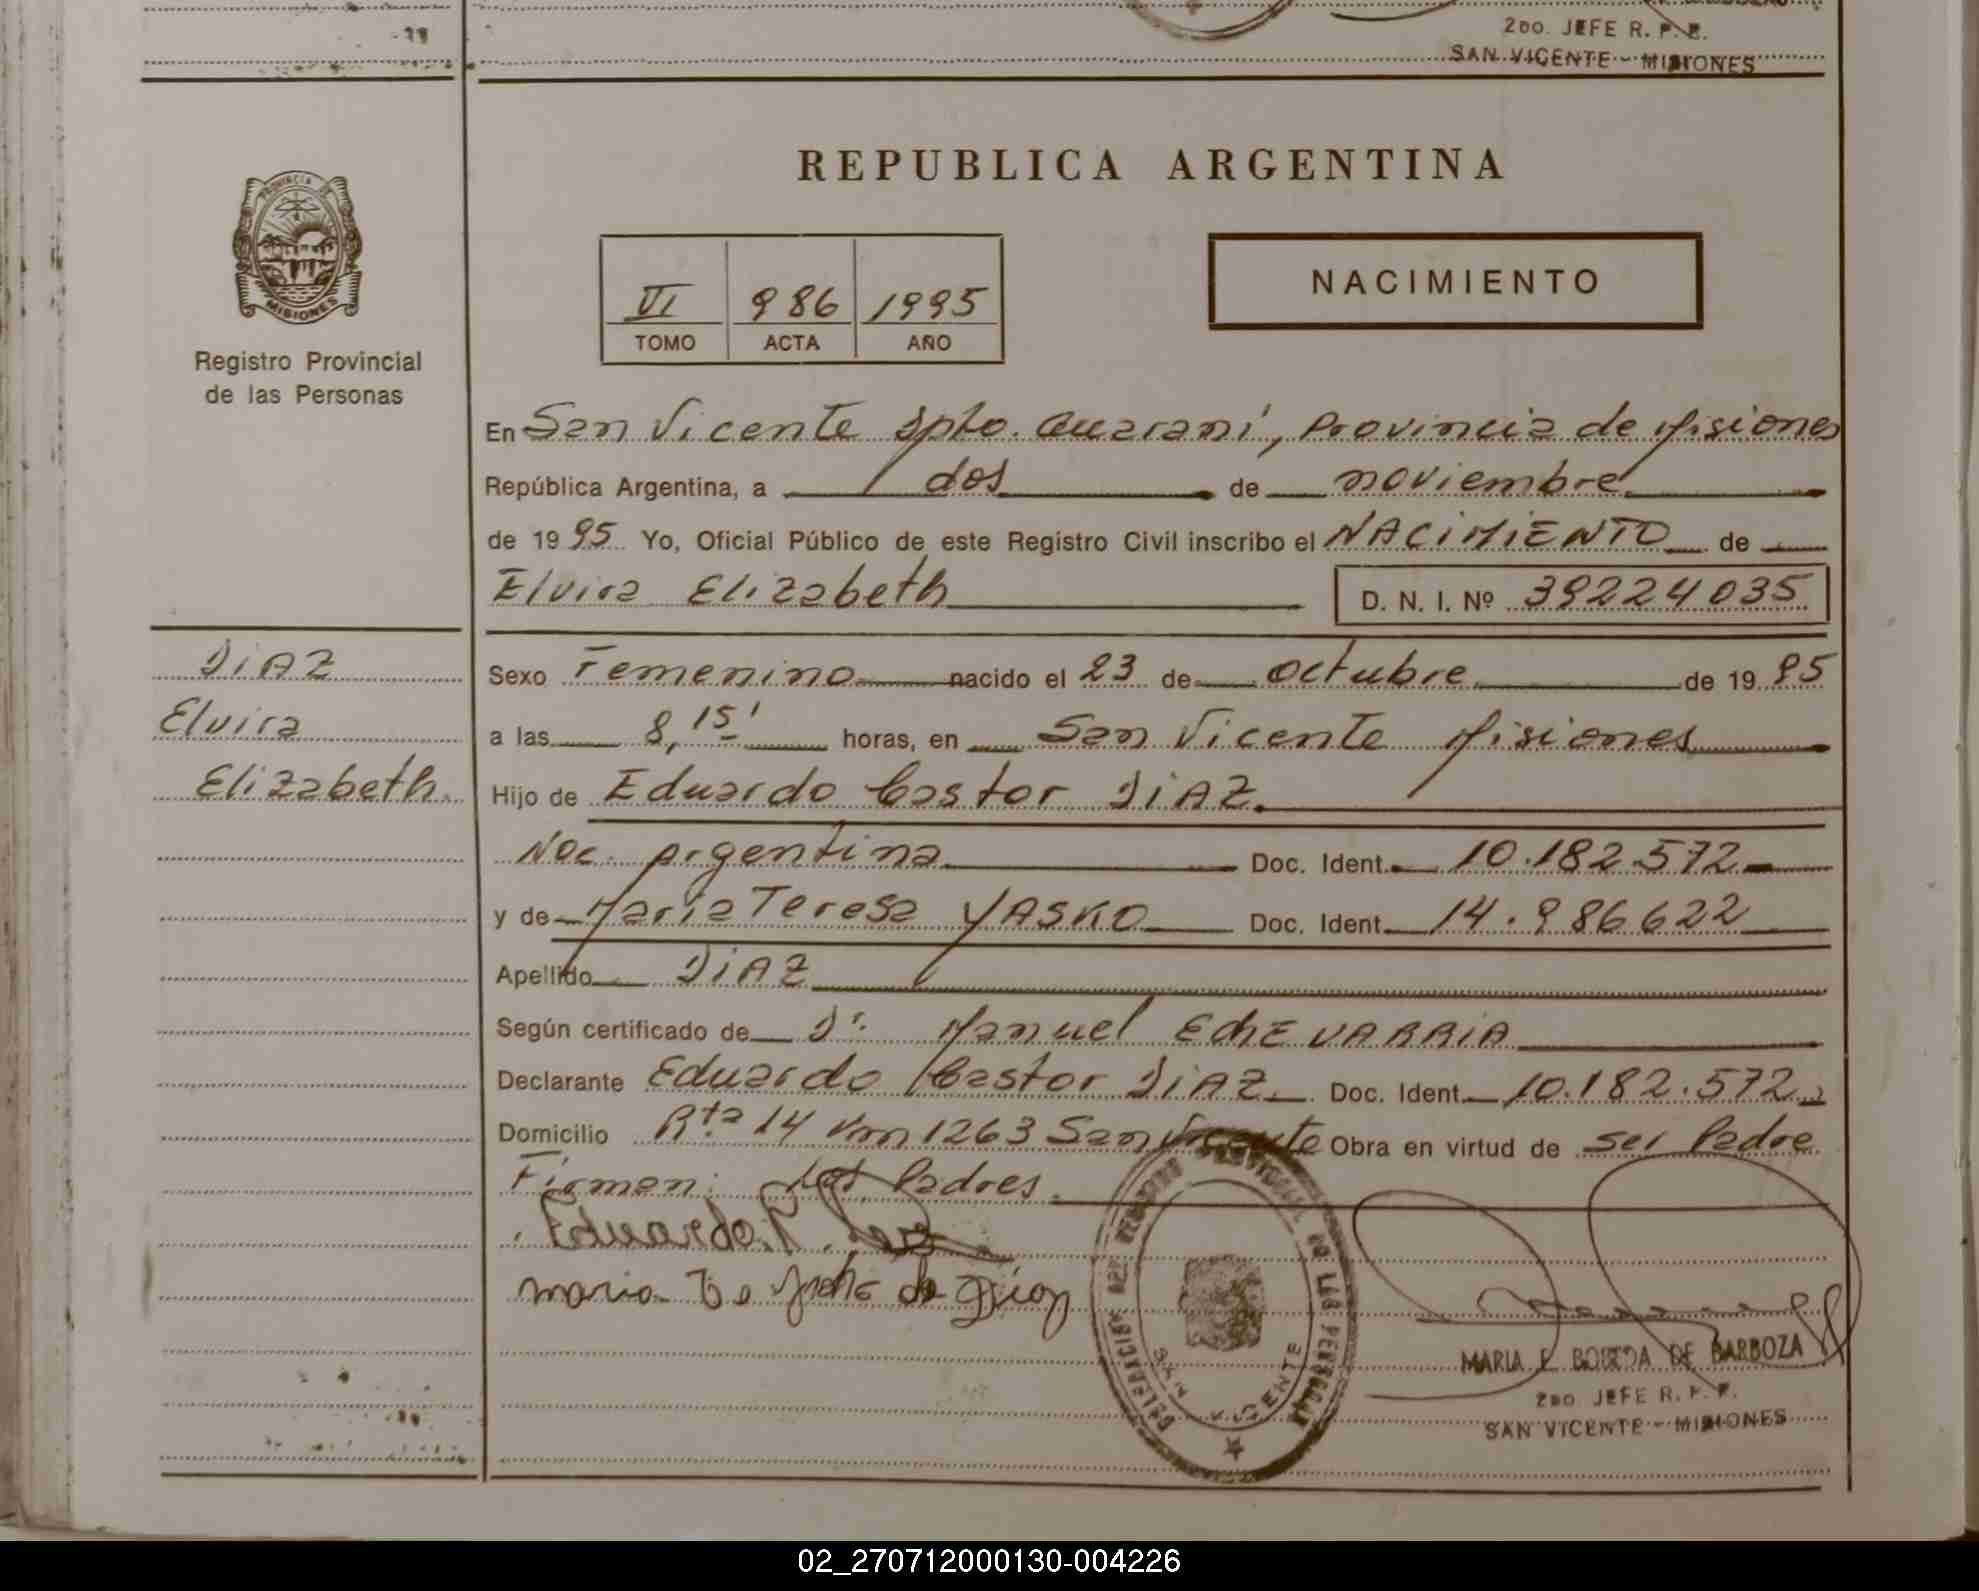 2do. JEFE R. P. P.
SAN VICENTE - MISIONES
PROVINCIA DE
MISIONES
Registro Provincial
de las Personas
REPUBLICA ARGENTINA
VI 986 1995
TOMO ACTA AÑO
NACIMIENTO
En San Vicente Dpto. Guaraní, Provincia de Misiones
República Argentina, a dos de noviembre
de 1995 Yo, Oficial Público de este Registro Civil inscribo el NACIMIENTO de
Elvira Elizabeth D. N. I. Nº 39224035
DIAZ
Elvira
Elizabeth.
Sexo Femenino nacido el 23 de octubre de 1995
a las 8,15' horas, en San Vicente Misiones
Hijo de Eduardo Castor DIAZ.
Nac. Argentina Doc. Ident. 10.182.572
y de María Teresa YASKO Doc. Ident. 14.986622
Apellido DIAZ
Según certificado de Dr. Manuel EchEVARRIA
Declarante Eduardo Castor DIAZ. Doc. Ident. 10.182.572
Domicilio Rta 14 Km 1263 San Vicente Obra en virtud de ser Padre.
Firman: Los Padres.
Eduardo
maria T de Diaz
DELEGACION DEL REGISTRO PROVINCIAL DE LAS PERSONAS
SAN VICENTE
MARIA E DE BARBOZA
2do JEFE R. P. P.
SAN VICENTE - MISIONES
02_270712000130-004226